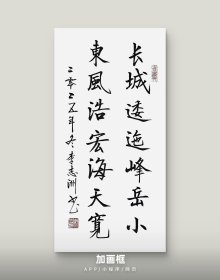 长城逶迤峰岳小
東風浩宏海天寬
二零二五年冬李志洲书
加画框
APP/小程序/网页